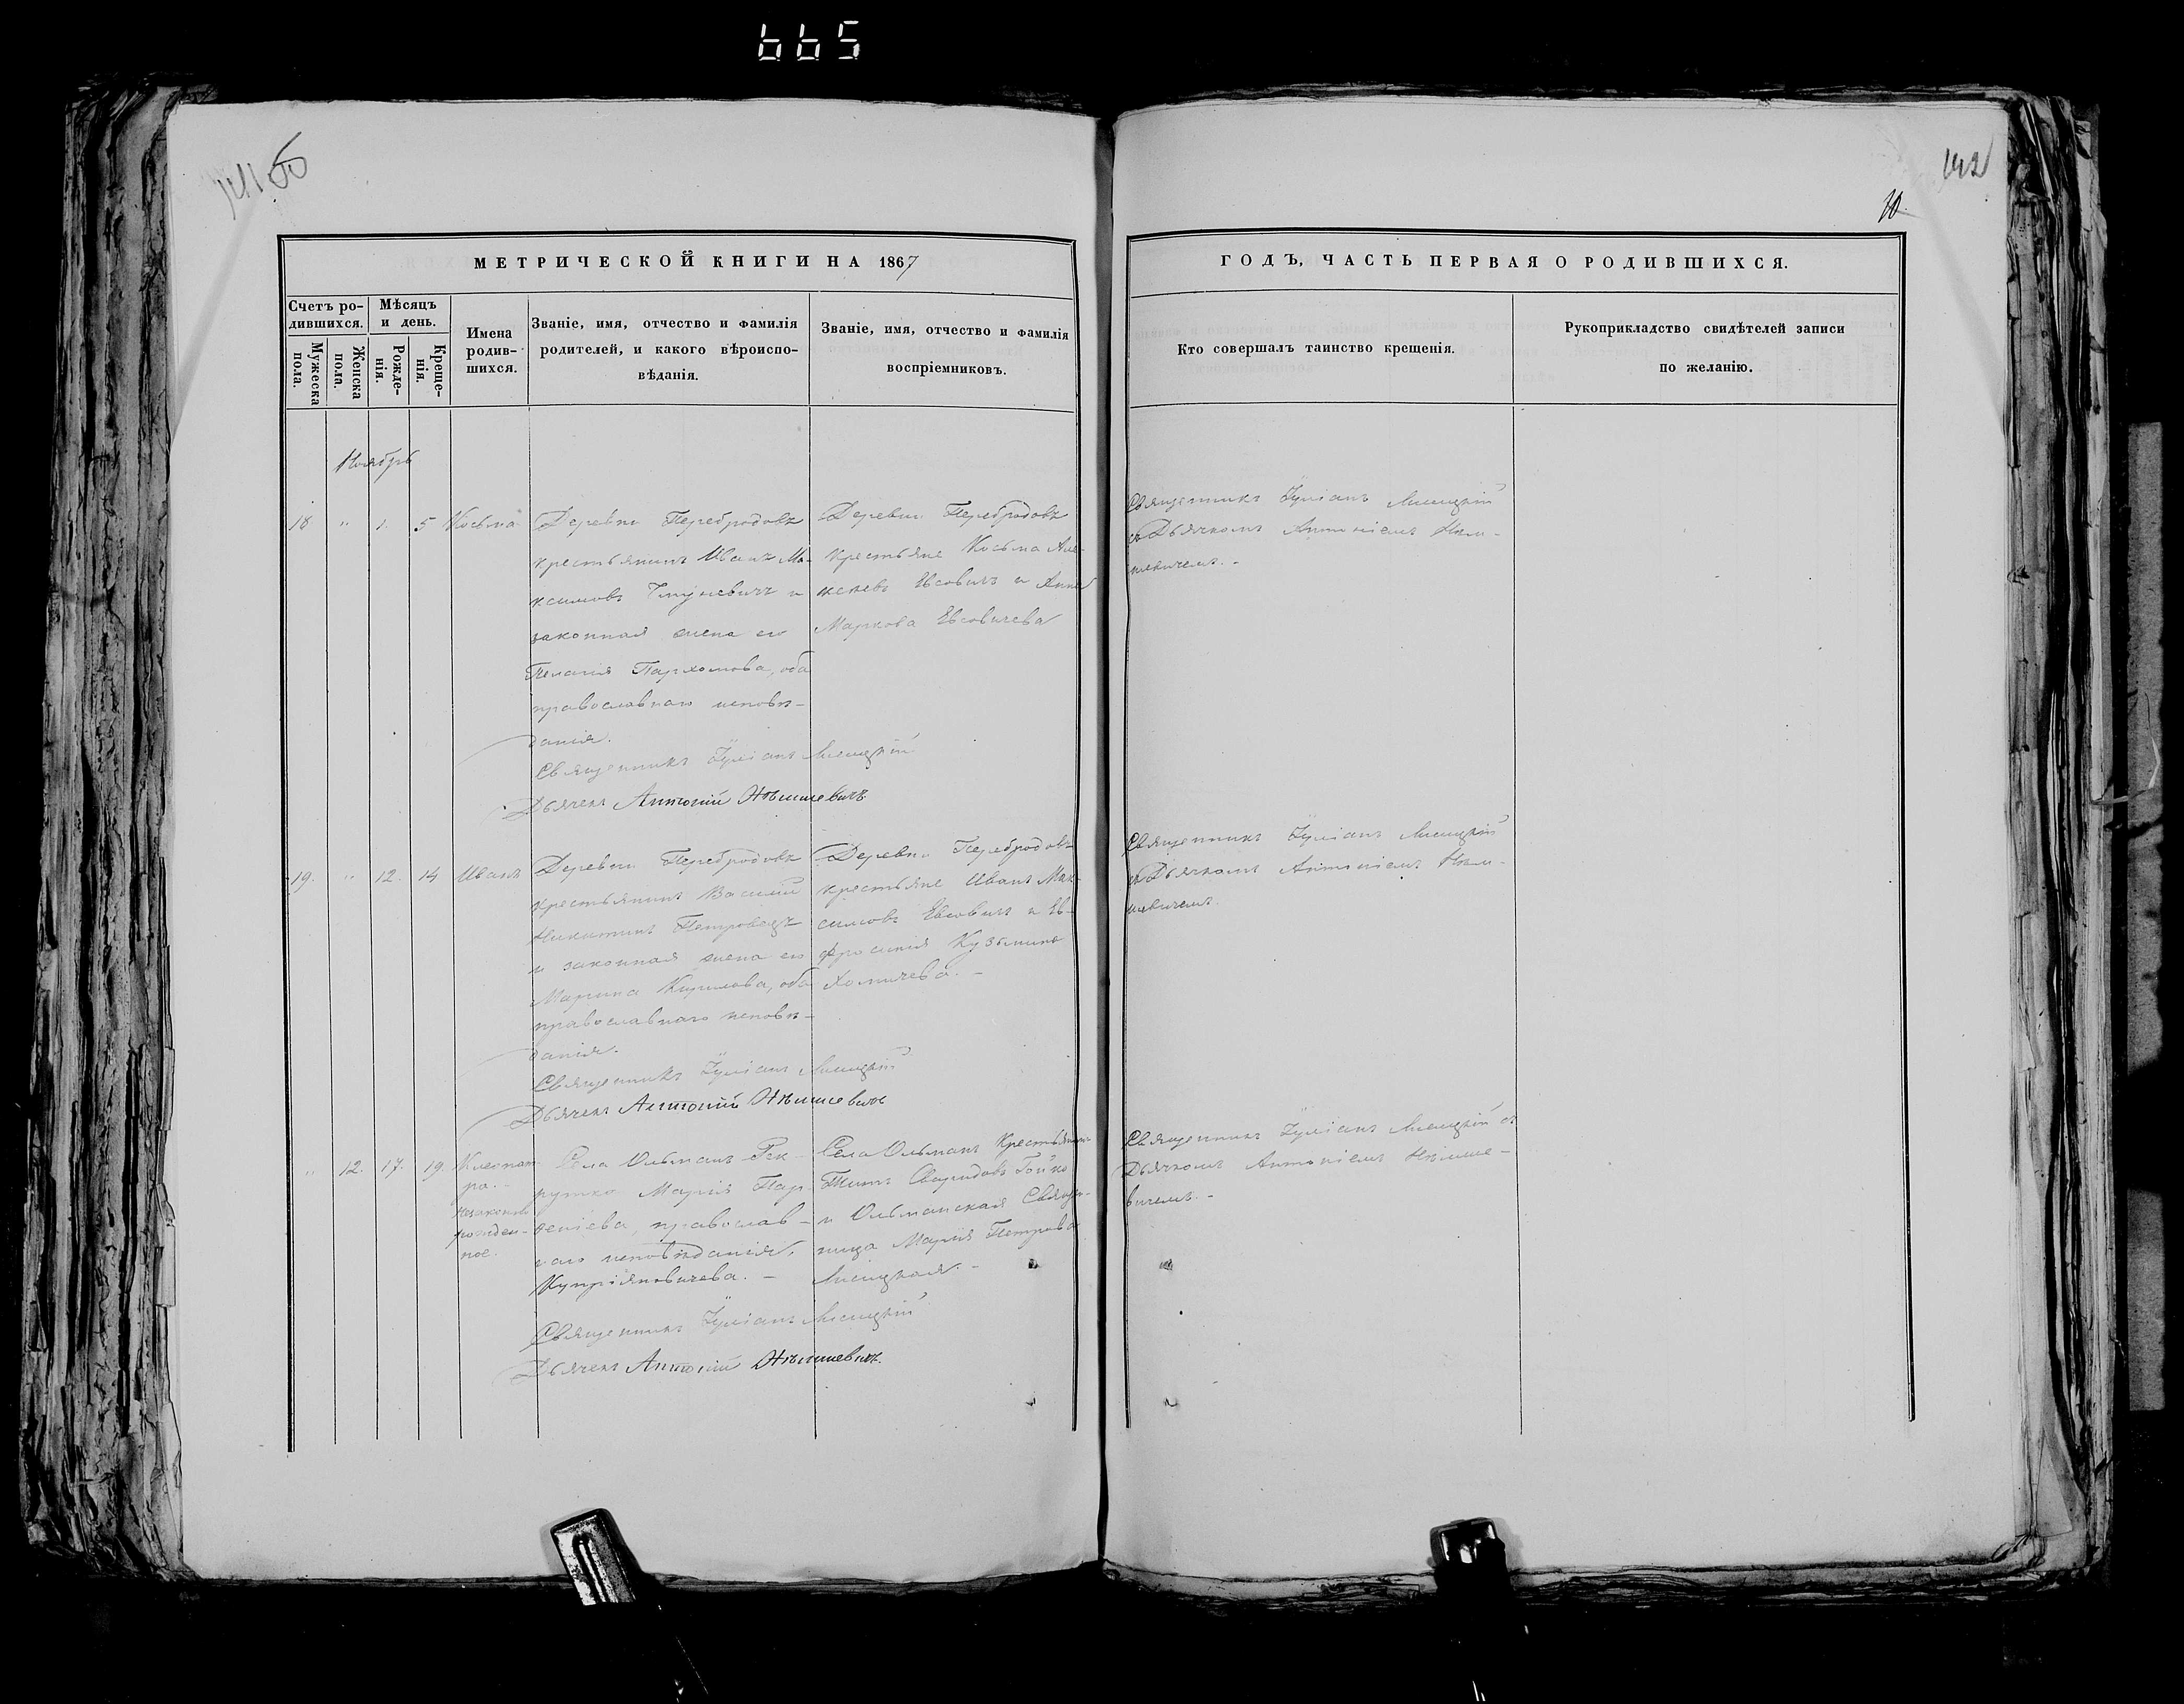 665
141 об
142
10.
МЕТРИЧЕСКОЙ КНИГИ НА 1867
Счетъ ро-
дившихся.
Мужеска
пола.
Женска
пола.
Мѣсяцъ
и день.
Рожде-
нія.
Креще-
нія.
Имена
родив-
шихся.
Званіе, имя, отчество и фамилія
родителей, и какого вѣроиспо-
вѣданія.
Званіе, имя, отчество и фамилія
воспріемниковъ.
ГОДЪ, ЧАСТЬ ПЕРВАЯ О РОДИВШИХСЯ.
Кто совершалъ таинство крещенія.
Рукоприкладство свидѣтелей записи
по желанію.
Ноябрь
18 " 1. 5 Косьма
Деревни Переbродовъ
крестьянинъ Иванъ Ма-
ксимовъ и
законная жена его
Пелагія Пархомова, оба
православнаго исповѣ-
данія.
Священникъ Іуліанъ Лисицкій
Дьячекъ Антоній Нѣмшевичъ
Деревни Перебродовъ
крестьяне Косьма Але-
ксѣевъ Евсовичъ и Анна
Маркова Евсовичева
Священникъ Іуліанъ Лисицкій
съ Дьячкомъ Антоніемъ Нѣм-
шевичемъ. -
19. " 12. 14 Иванъ
Деревни Перебродовъ
крестьянинъ Василій
Никитинъ Петровецъ
и законная жена его
Марина Кирилова, оба
православнаго исповѣ-
данія.
Священникъ Іуліанъ Лисицкій
Дьячекъ Антоній Нѣмшевичъ
Деревни Перебродовъ
крестьяне Иванъ Мак-
симовъ Евсовичъ и Ев-
фросинія Кузьмина
Хомичева. -
Священникъ Іуліанъ Лисицкій
съ Дьячкомъ Антоніемъ Нѣм-
шевичемъ.
" 12. 17. 19 Клеопат-
ра. -
Незаконно
рожден-
ное.
Села Ольманъ Рек-
рутка Марія Пар-
феніева, православ-
наго исповѣданія,
Купріяновичева. -
Священникъ Іуліанъ Лисицкій
Дьячекъ Антоній Нѣмшевичъ.
Села Ольманъ Крестьянинъ
Титъ Свиридовъ Гойко
и Ольманская Священ-
ница Марія Петрова
Лисицкая. -
Священникъ Іуліанъ Лисицкій съ
Дьячкомъ Антоніемъ Нѣмше-
вичемъ. -